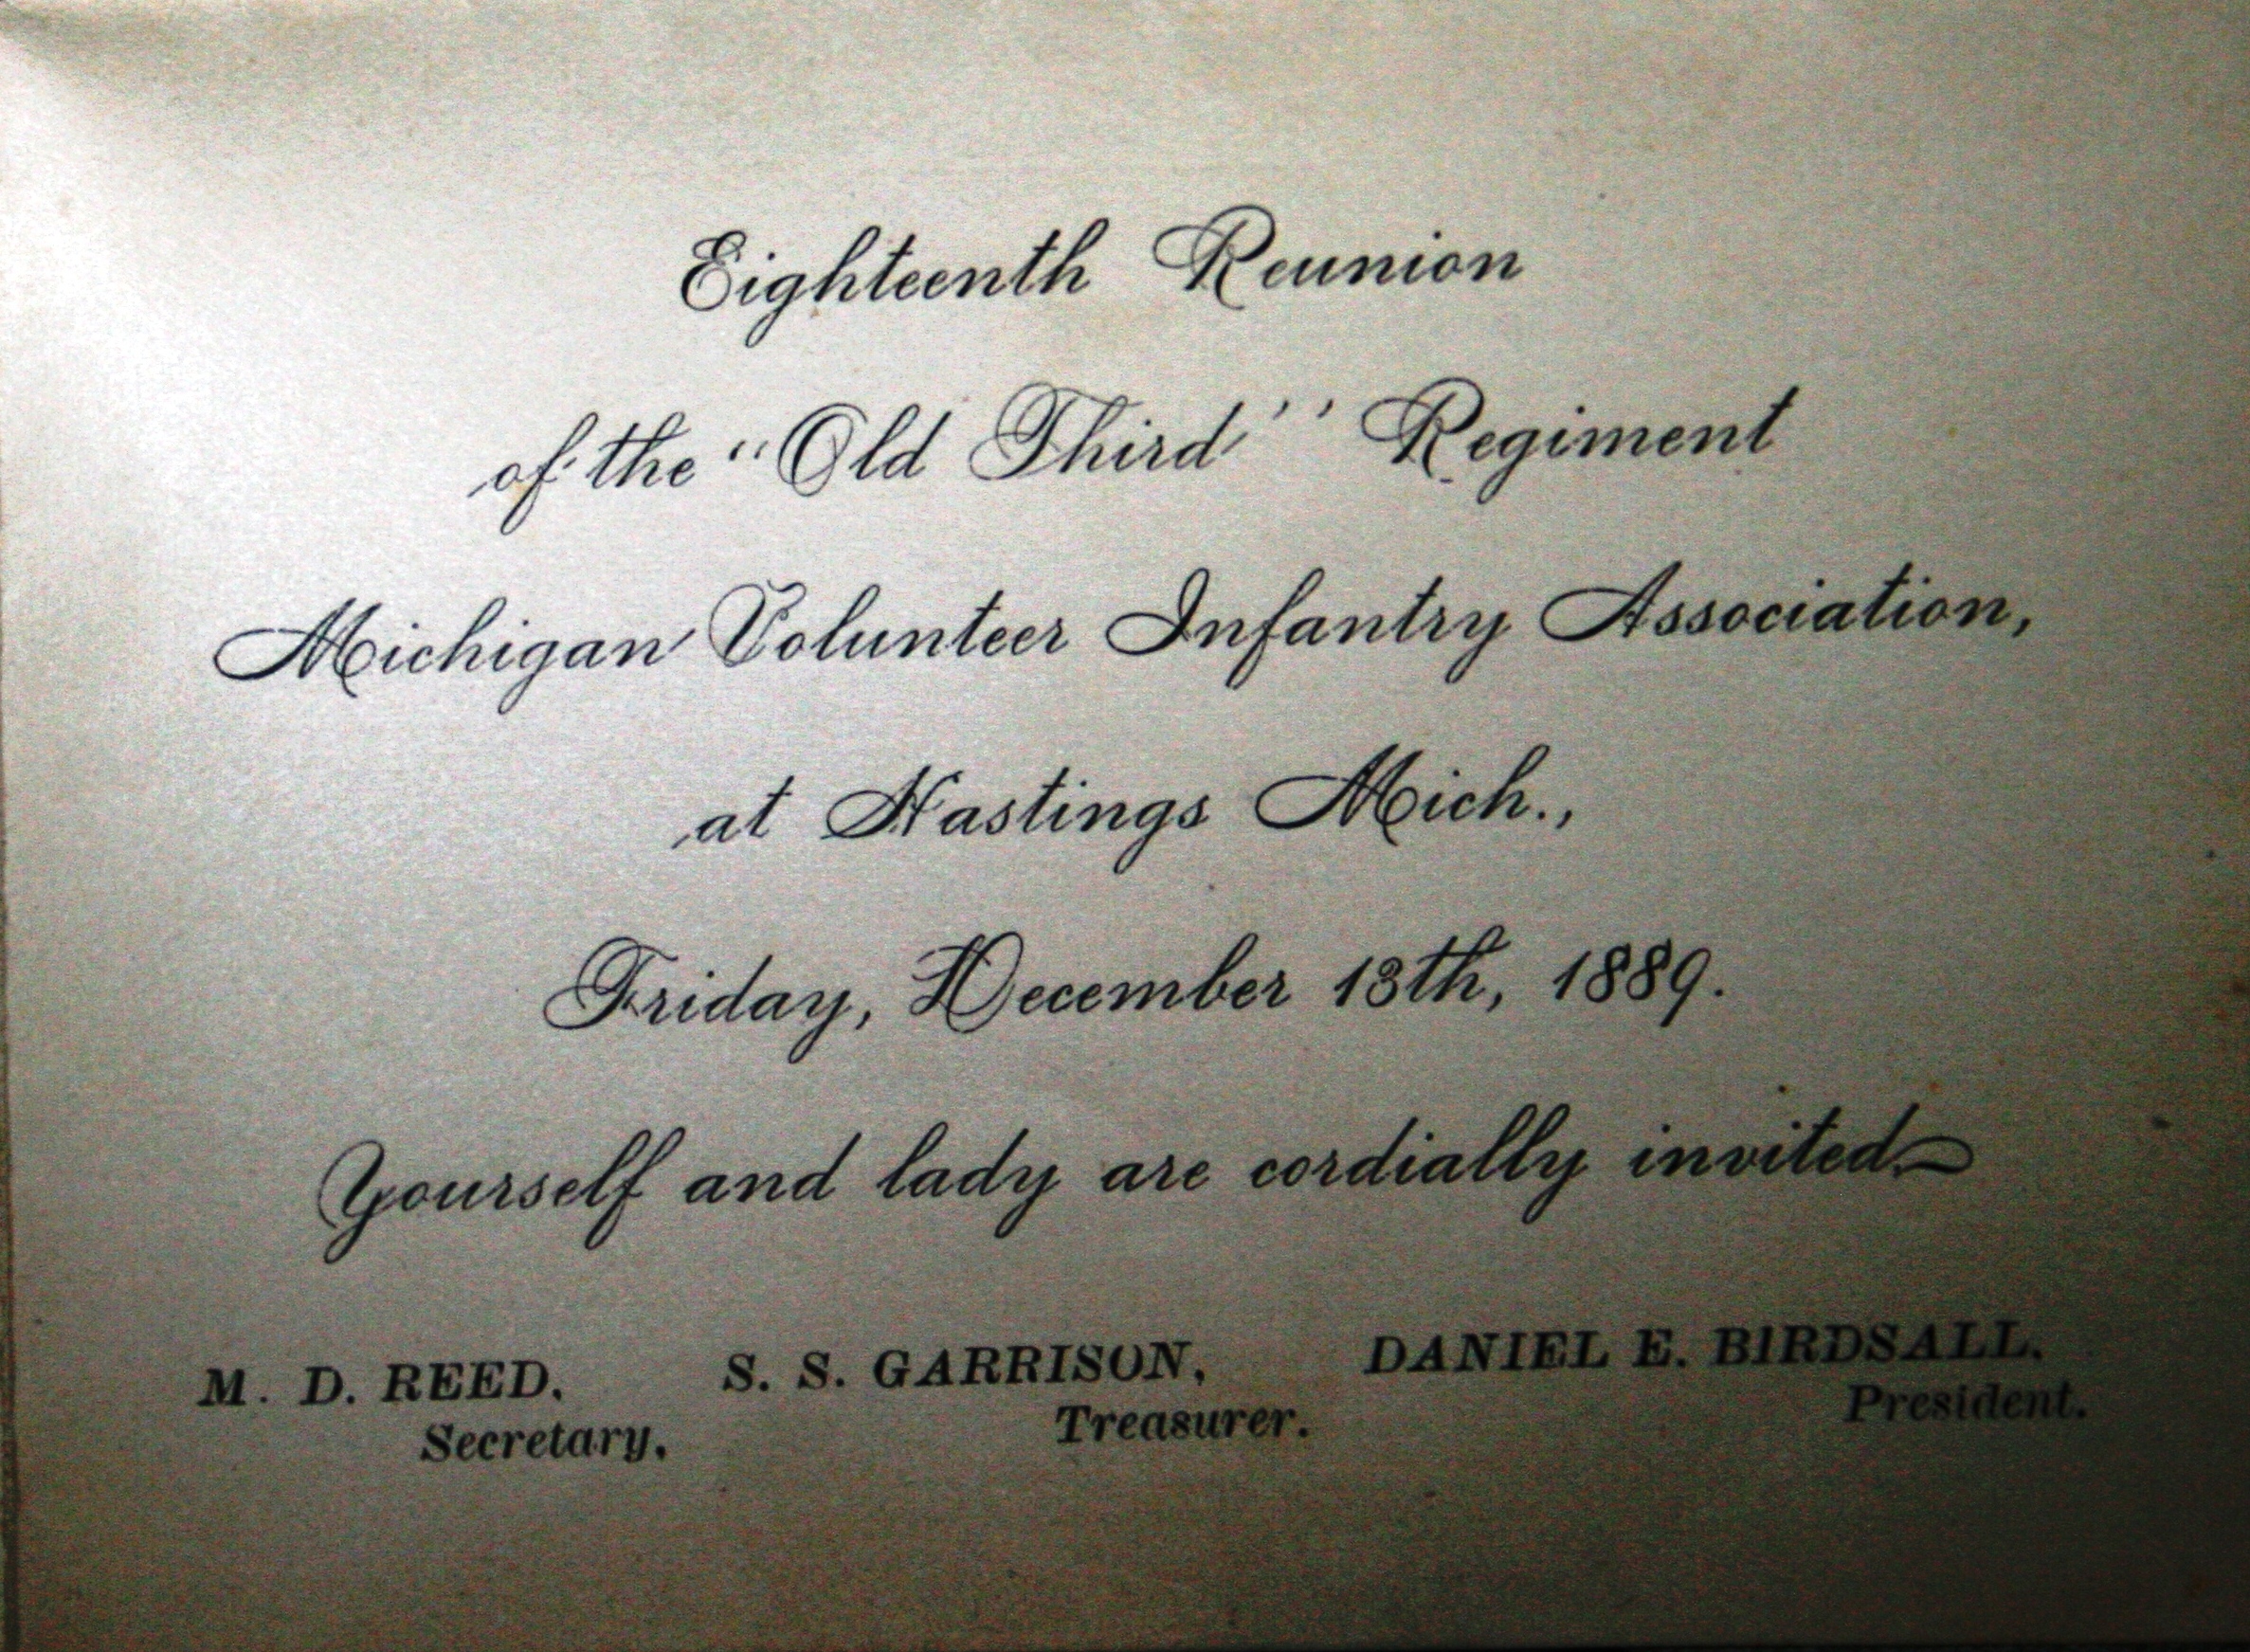 Eighteenth Reunion
of the "Old Third" Regiment
Michigan Volunteer Infantry Association,
at Hastings Mich.,
Friday, December 13th, 1889.
Yourself and lady are cordially invited.
M. D. REED, S. S. GARRISON, DANIEL E. BIRDSALL,
Secretary. Treasurer. President.